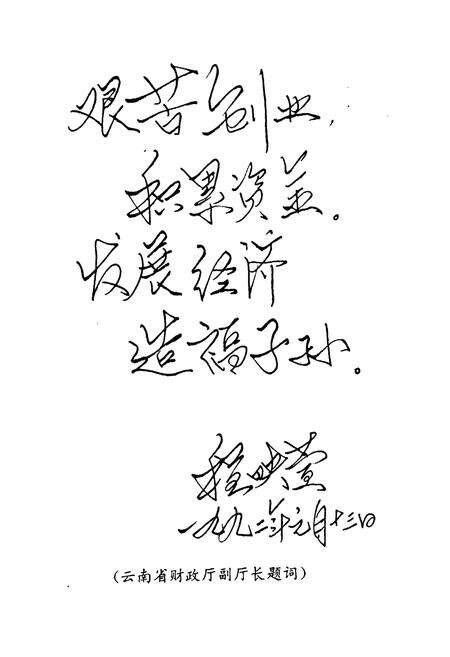 艰苦创业，
积累资金。
发展经济
造福子孙。
程映萱
一九九二年元月十三日
（云南省财政厅副厅长题词）